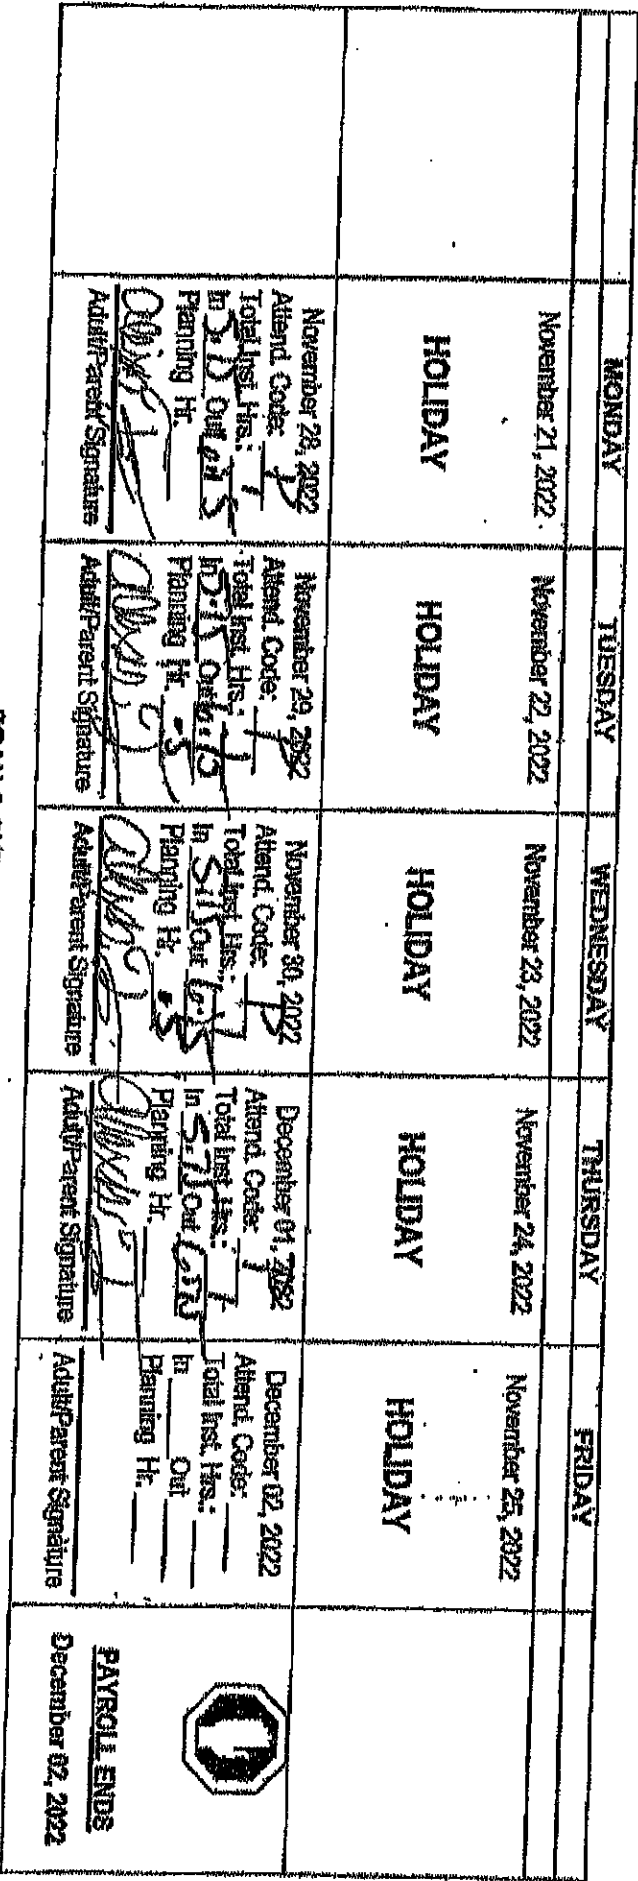 MONDAY TUESDAY WEDNESDAY THURSDAY FRIDAY
November 21, 2022 November 22, 2022 November 23, 2022 November 24, 2022 November 25, 2022
HOLIDAY HOLIDAY HOLIDAY HOLIDAY HOLIDAY
November 28, 2022
Attend. Code: P
Total Inst. Hrs.: 1
In Out
Planning Hr.
Adult/Parent Signature
November 29, 2022
Attend. Code: P
Total Inst. Hrs.: 1
In 5:15 Out 6:15
Planning Hr. .5
Adult/Parent Signature
November 30, 2022
Attend. Code: P
Total Inst. Hrs.: 1
In 5:15 Out 6:15
Planning Hr. .5
Adult/Parent Signature
December 01, 2022
Attend. Code: P
Total Inst. Hrs.: 1
In Out
Planning Hr.
Adult/Parent Signature
December 02, 2022
Attend. Code:
Total Inst. Hrs.:
In Out
Planning Hr.
Adult/Parent Signature
PAYROLL ENDS
December 02, 2022